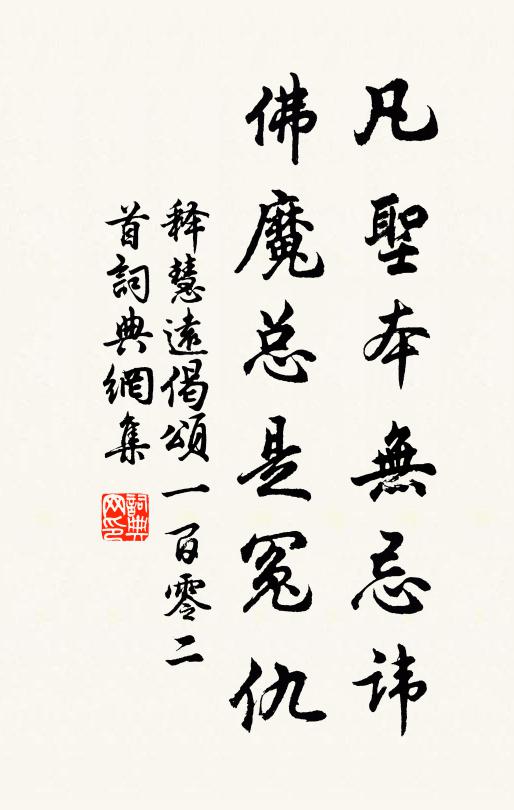 凡聖本無忌諱
佛魔总是冤仇
释慧遠偈頌一百零二
首詞典網集
詞典网印